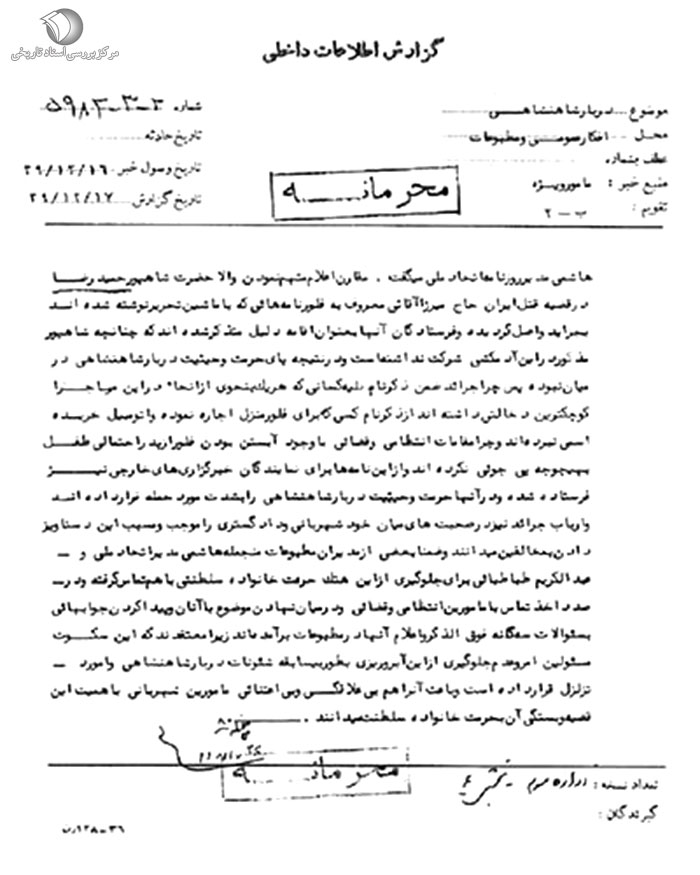 مرکز بررسی اسناد تاریخی
گزارش اطلاعات داخلی
موضوع دربار شاهنشاهی
شماره ۵۹۸۴-۳-۳
محل افکار عمومی و مطبوعات
تاریخ حادثه
عطف بشماره
تاریخ وصول خبر ۳۹/۱۲/۱۶
منبع خبر : مامور ویژه
محرمانه
تاریخ گزارش ۳۹/۱۲/۱۷
تقویم : ب – ۲
هاشمی مدیر روزنامه اتحاد ملی میگفت . مقارن اعلام متهم نمودن والا حضرت شاهپور حمید رضا
در قضیه قتل ایران حاج میرزا آقائی معروف به فلور نامه هائی که با ماشین تحریر نوشته شده اند
بجراید واصل گردیده و فرستادگان آنها بعنوان اقامه دلیل متذکر شده اند که چنانچه شاهپور
مذکور در این آدمکشی شرکت نداشته است و در نتیجه پای حرمت و حیثیت دربار شاهنشاهی در
میان نبوده پس چرا جرائد ضمن ذکر نام کسانی که هریک بنحوی از انحاء در این ماجرا
کوچکترین دخالتی داشته اند از ذکر نام کسی که برای فلور منزل اجاره نموده و اتومبیل خریده
اسمی نبرده اند و چرا مقامات انتظامی و قضائی با وجود آبستن بودن فلور از پدر احتمالی طفل
بهیچوجه پی جوئی نکرده اند و از این نامه ها برای نمایندگان خبرگزاری های خارجی نیز
فرستاده شده و در آنها حرمت و حیثیت دربار شاهنشاهی را بشدت مورد حمله قرار داده اند
و ارباب جرائد نیز در صحبت های میان خود شهربانی و دادگستری را موجب و مسبب این دستاویز
دادن بمخالفین میدانند و ضمنا بعضی از مدیران مطبوعات منجمله هاشمی مدیر اتحاد ملی و –
عبدالکریم طباطبائی برای جلوگیری از این هتک حرمت خانواده سلطنتی با هم تماس گرفته و در –
صدد اخذ تماس با مامورین انتظامی و قضائی و در میان نهادن موضوع با آنان و پیدا کردن جوابهائی
بسئوالات سه گانه فوق الذکر و اعلام آنها در مطبوعات برآمده اند زیرا معتقدند که این سکوت
مسئولین امر و عدم جلوگیری از این آبروریزی بطور بیسابقه شئونات دربار شاهنشاهی را مورد –
تزلزل قرار داده است و باعث آنرا هم بی علاقگی و بی اعتنائی مامورین شهربانی باهمیت این
قضیه و بستگی آن بحرمت خانواده سلطنت میدانند .
محرمانه
تعداد نسخه : اداره سوم - بخش ۴
گیرندگان :
۳۶-۱۲۸